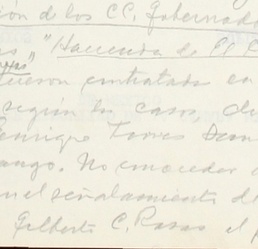 ión de los CC. Gobernado
" "Hacienda de El C
fueron contratada en
según los casos, de
Enrique Torres
ango. No conocedor
el señalamiento d
Gilberto C. Rosas el